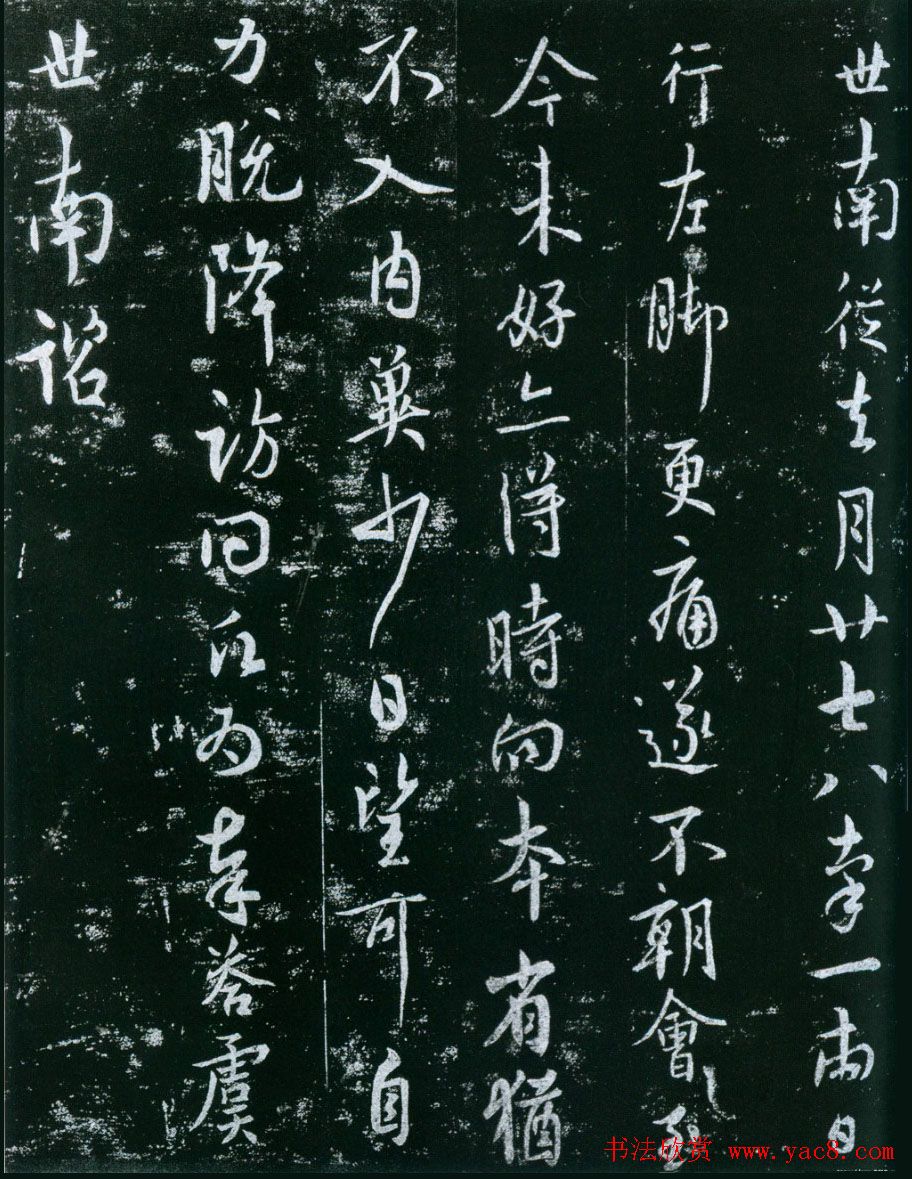 世南從去月廿七八牽一兩日
行左脚更痛遂不朝會至
今未好亦得時向本省猶
不入内冀少日望可自
力脱降訪問願為奉荅虞
世南諮
书法欣赏 www.yac8.com